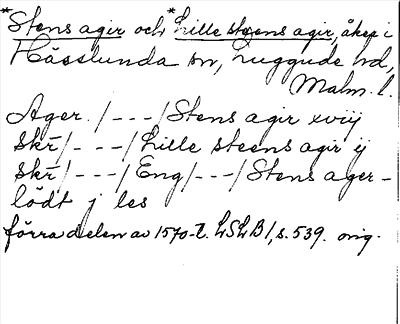 *Stens agir och *Lille steens agir, åker i
Hässlunda sn, Luggude hd,
Malm. l.
Ager /---/ Stens agir xviij
skr̄ /---/ Lille steens agir ij
skr̄ /---/ Eng /---/ Stens ager-
lödt j les
förra delen av 1570-t. LSLB 1, s. 539. orig.